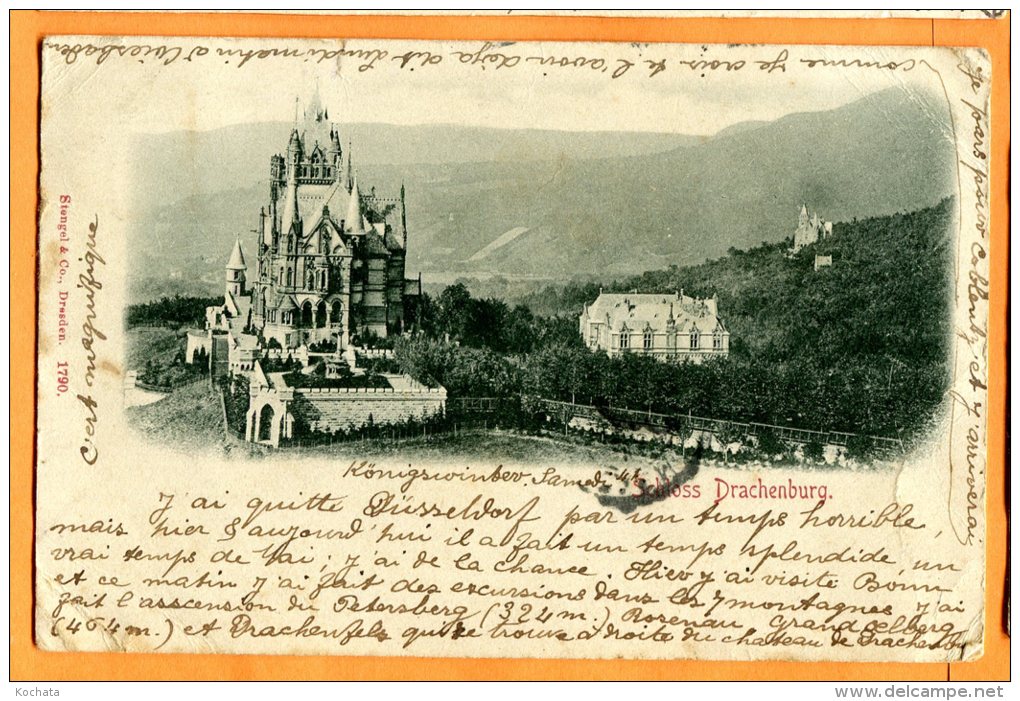 Königswinter, Samedi
Schloss Drachenburg.
J'ai quitte Düsseldorf par un temps horrible
mais hier & aujourd'hui il a fait un temps splendide, un
vrai temps de Mai; j'ai de la chance. Hier j'ai visite Bonn
et ce matin j'ai fait des excursions dans les 7 montagnes, j'ai
fait l'ascension du Petersberg (324 m.) Rosenau, Grand Oelberg
(464 m.) et Drachenfels qui se trouve à droite du chateau de Drachenburg
Je pars pour Coblentz et j'arriverai
comme je crois te l'avoir deja dit Lundi matin a Wiesbaden
C'est magnifique
Stengel & Co., Dresden. 1790.
Kochata
www.delcampe.net